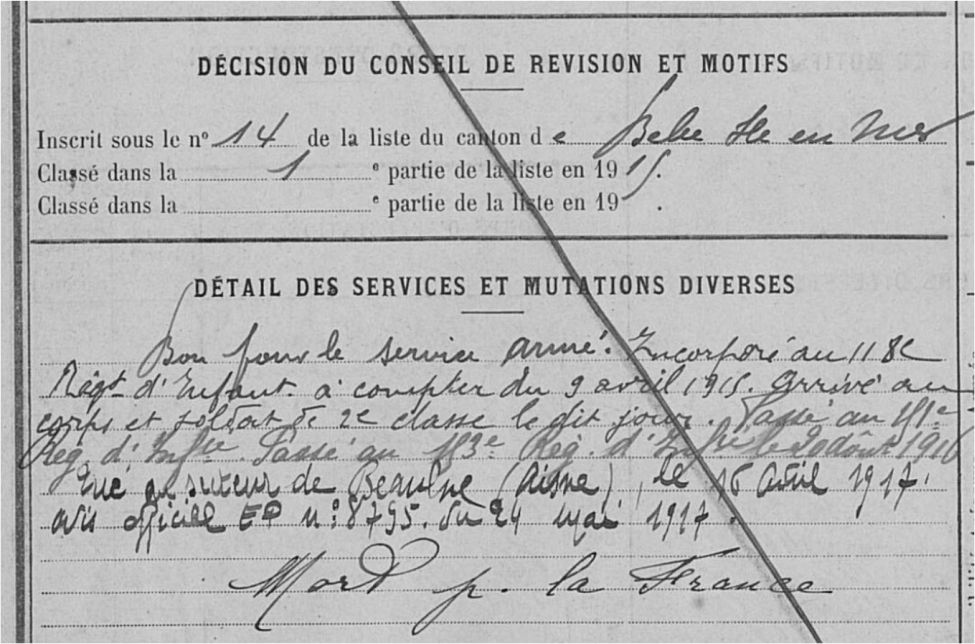 DÉCISION DU CONSEIL DE REVISION ET MOTIFS
Inscrit sous le nº 14 de la liste du canton d e Belle Ile en Mer
Classé dans la 1 e partie de la liste en 19 15.
Classé dans la e partie de la liste en 19 .
DÉTAIL DES SERVICES ET MUTATIONS DIVERSES
Bon pour le service armé. Incorporé au 118e
Régt d'Infant. à compter du 9 avril 1915. Arrivé au
corps et soldat de 2e classe le dit jour. Passé au 151e
Rég. d'Infte. Passé au 153e Rég. d'Infte le 20 août 1916
Tué au secteur de Beaulne (Aisne), le 16 Avril 1917.
avis officiel EP nº 8795. du 24 mai 1917.
Mort p. la France